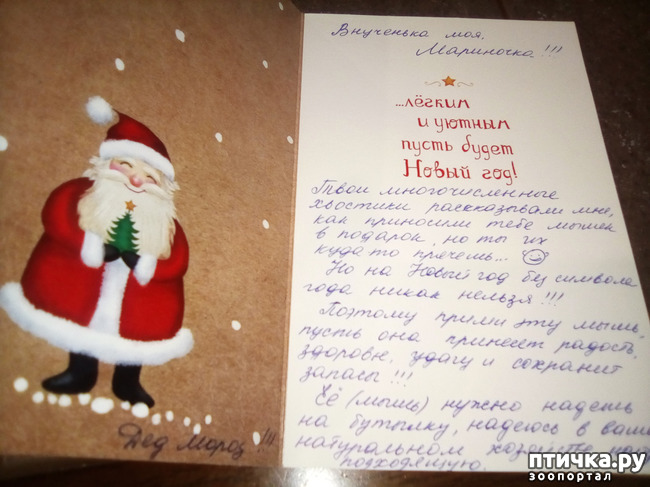 Внученька моя,
Мариночка !!!
...лёгким
и уютным
пусть будет
Новый год!
Твои многочисленные
хвостики рассказывали мне,
как приносили тебе мышек
в подарок, но ты их
куда то прячешь...
Но на Новый год без символа
года никак нельзя !!!
Поэтому прими эту мышь,
пусть она принесёт радость,
здоровье, удачу и сохранит
запасы !!!
Её (мышь) нужно надеть
на бутылку, надеюсь в вашем
натуральном хозяйстве
подходящую.
Дед Мороз !!!
птичка.ру
зоопортал